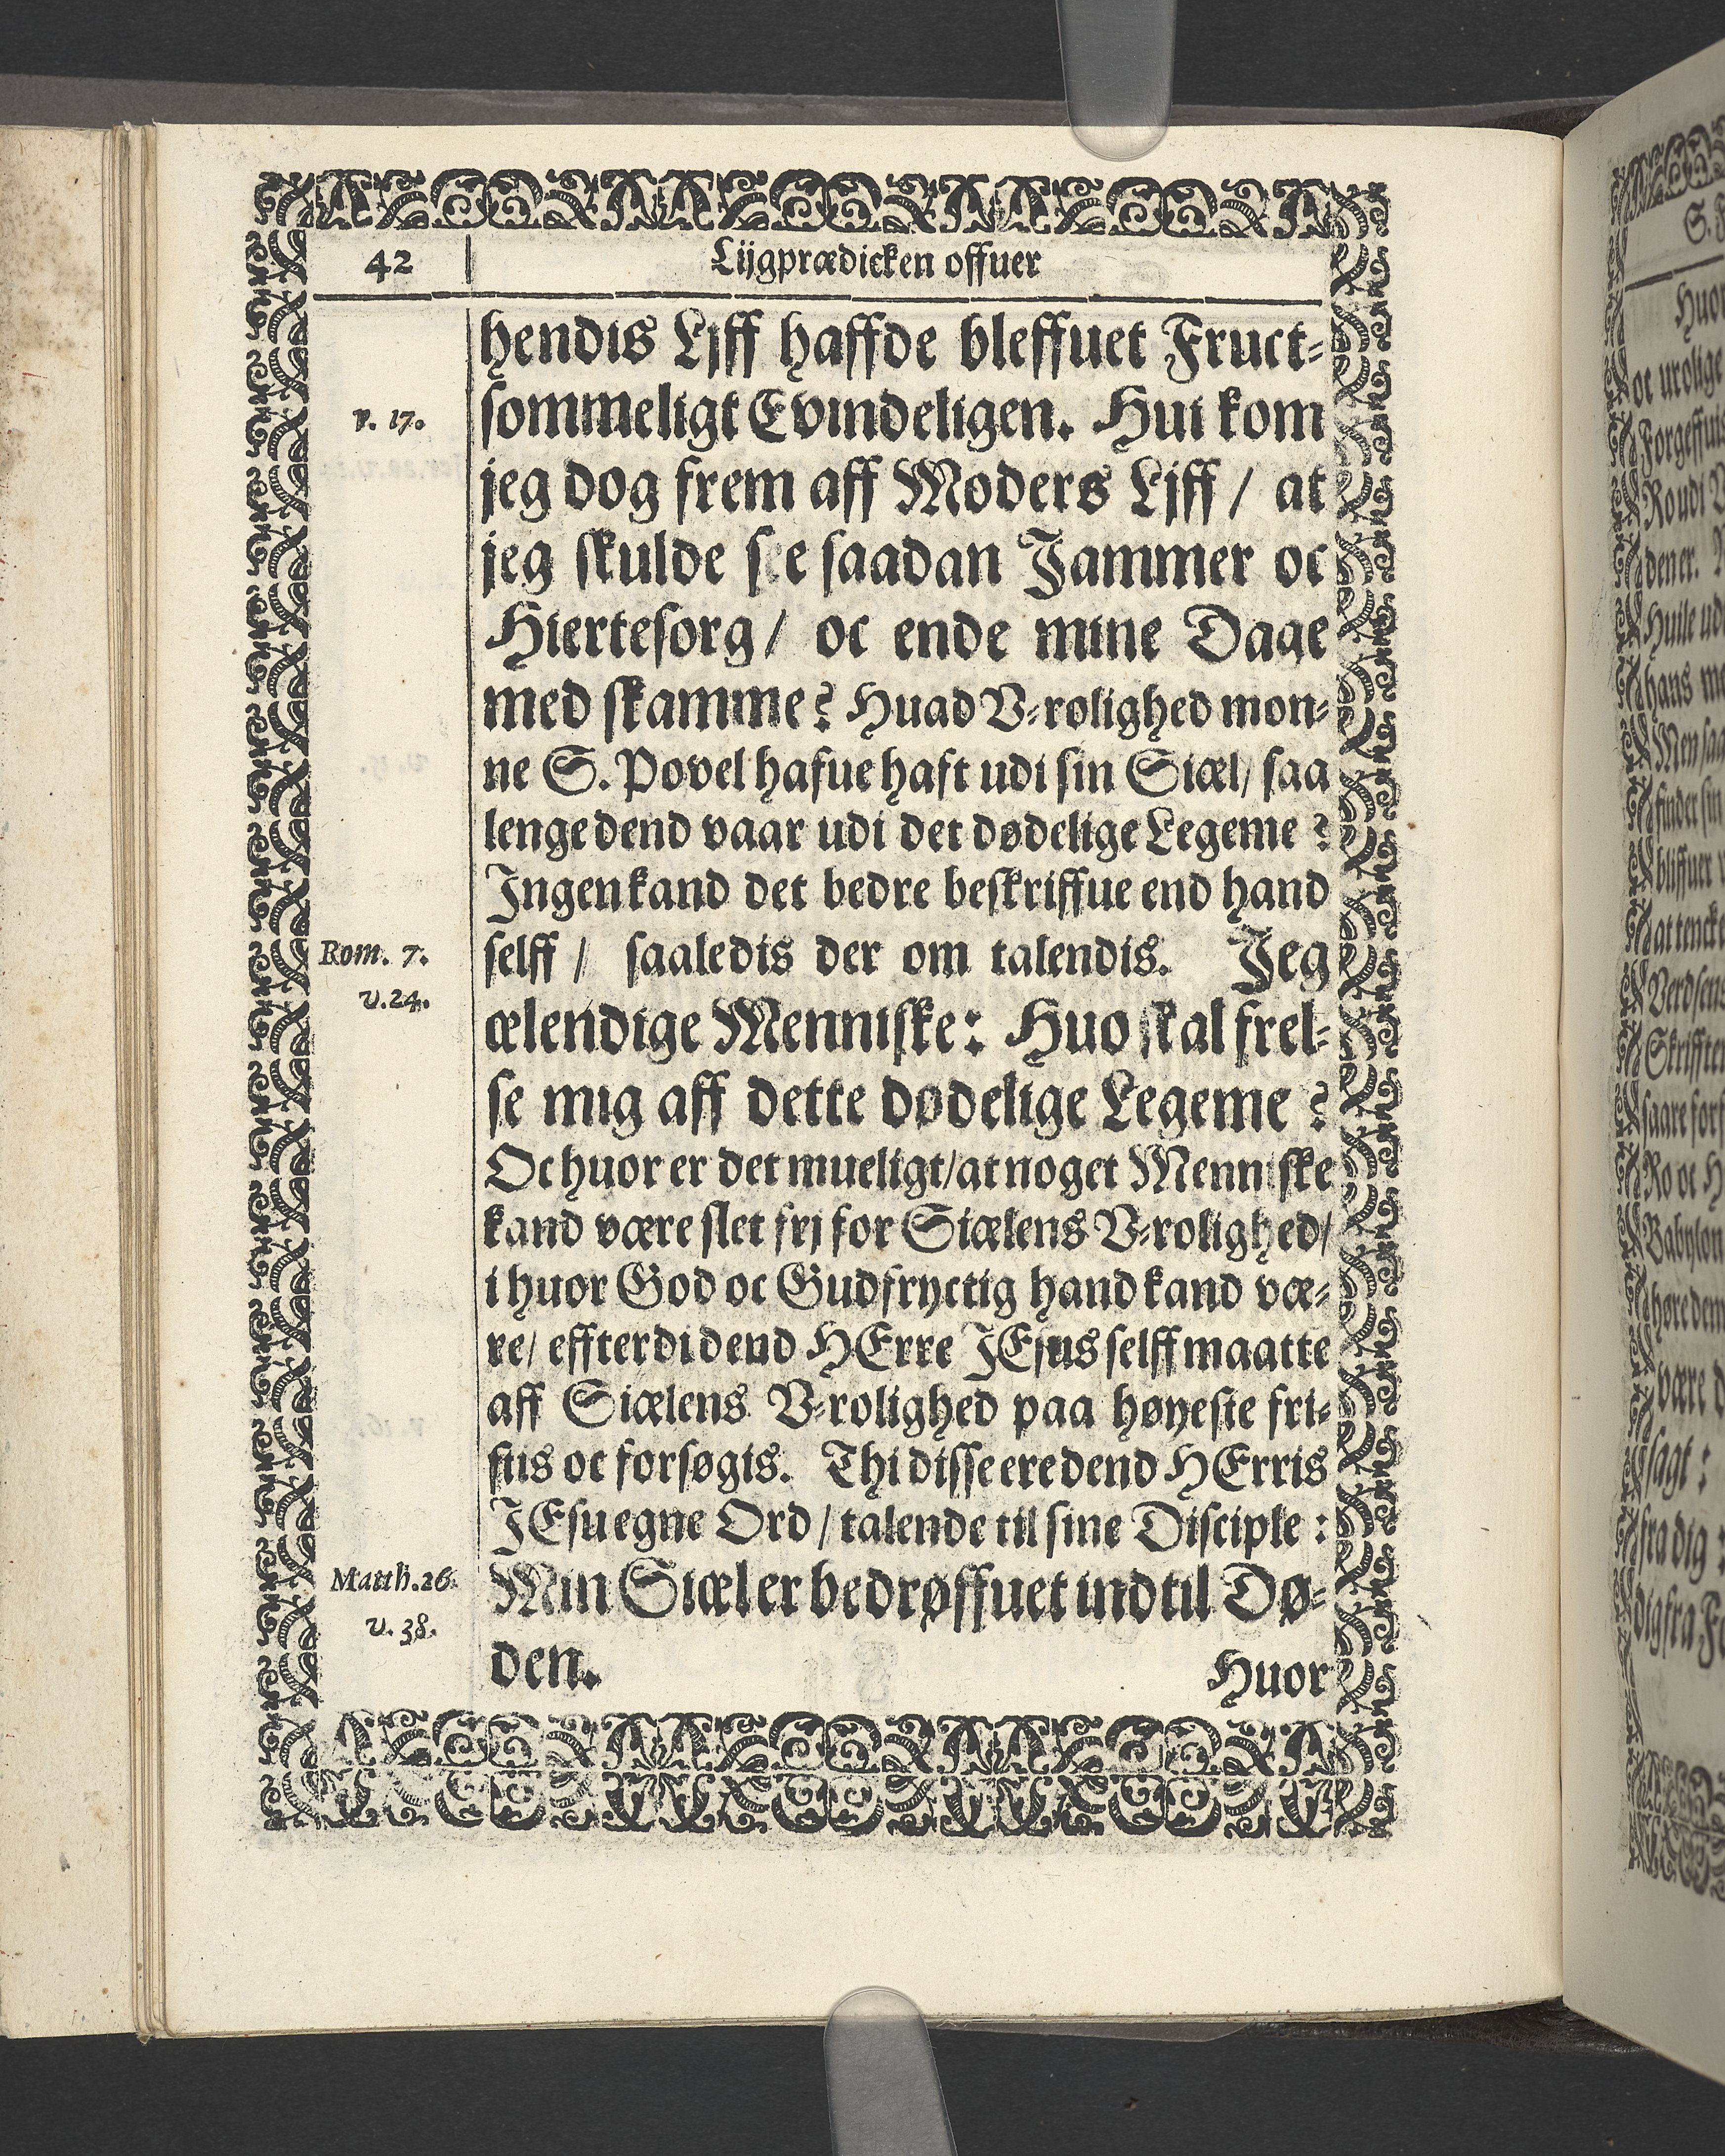 42
Lijgprædicken offuer
hendis Ljff haffde bleffuet Fruct-
v. 17.
sommeligt Evindeligen. Hui kom
jeg dog frem aff Moders Ljff / at
jeg skulde see saadan Jammer oc
Hiertesorg / oc ende mine Dage
med skamme? Huad V-rolighed mon-
ne S. Povel hafue haft udi sin Siæl / saa
lenge dend vaar udi det dødelige Legeme?
Ingen kand det bedre beskriffue end hand
Rom. 7.
v. 24.
selff / saaledis der om talendis. Jeg
ælendige Menniske: Huo skal frel-
se mig aff dette dødelige Legeme?
Oc huor er det mueligt / at noget Menniske
kand være slet frj for Siælens V-rolighed /
i huor God oc Gudfryctig hand kand væ-
re / effterdi dend HErre JEsus selff maatte
aff Siælens V-rolighed paa høyeste fri-
stis oc forsøgis. Thi disse ere dend HErris
JEsu egne Ord / talende til sine Disciple:
Matth. 26.
v. 38.
Min Siæl er bedrøffuet ind til Dø-
den.
Huor